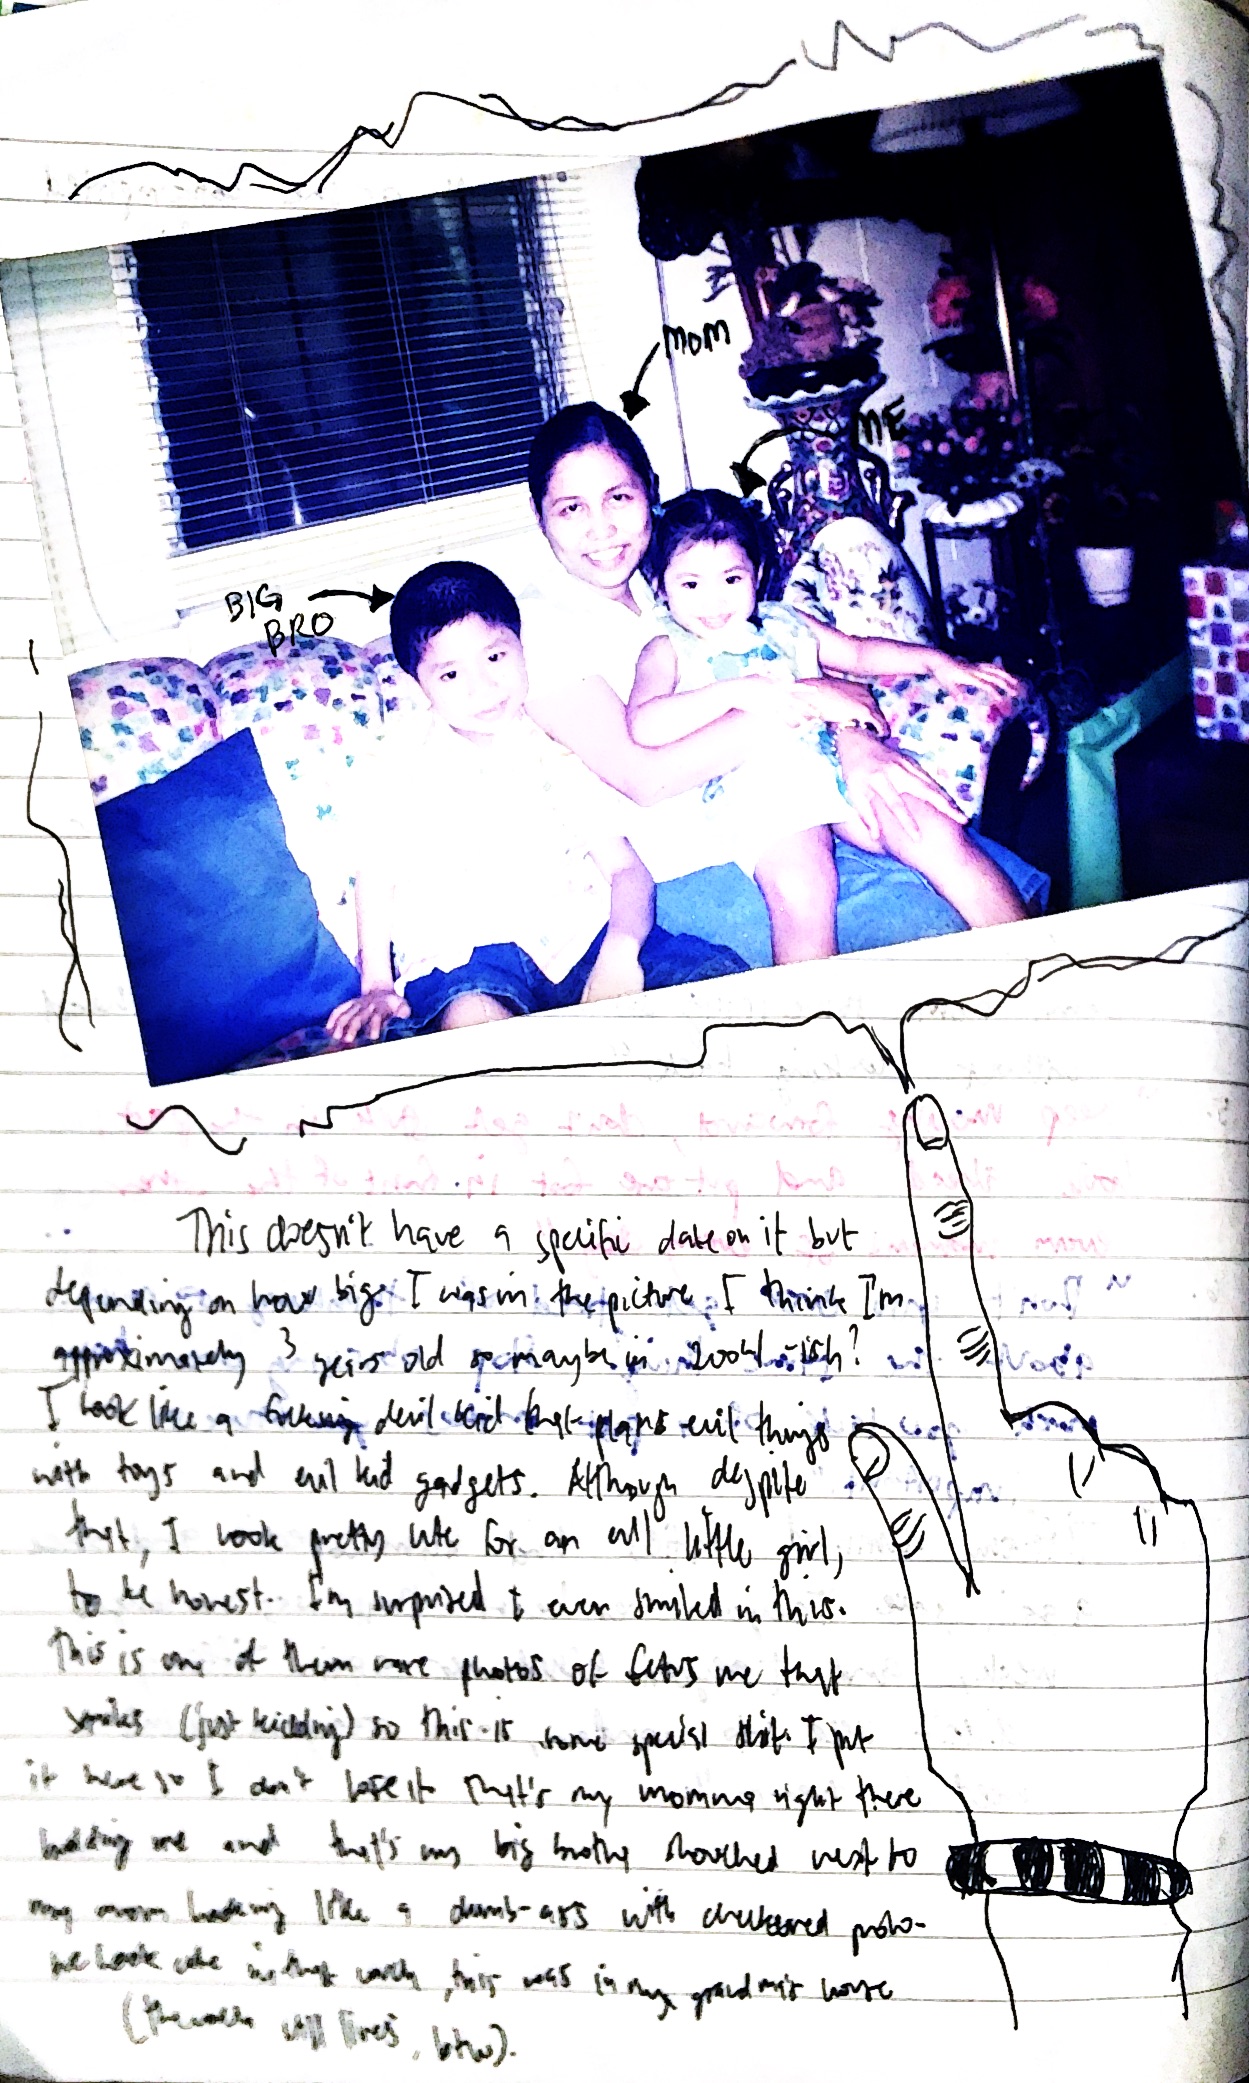 MOM
ME
BIG
BRO
This doesn't have a specific date on it but
depending on how big I was in the picture, I think I'm
approximately 3 years old so maybe in 2004-ish?
I look like a fucking devil kid that plans evil things
with toys and evil kid gadgets. Although despite
that, I look pretty cute for an evil little girl,
to be honest. I'm surprised I even smiled in this.
This is one of them rare photos of fetus me that
smiles (just kidding) so this is some special shit. I put
it here so I don't lose it. That's my momma right there
holding me and that's my big brotha slouched next to
my mom looking like a dumb-ass with checkered polo-
we look cute in that couch, this was in my grandma's house
(the couch still lives, btw).